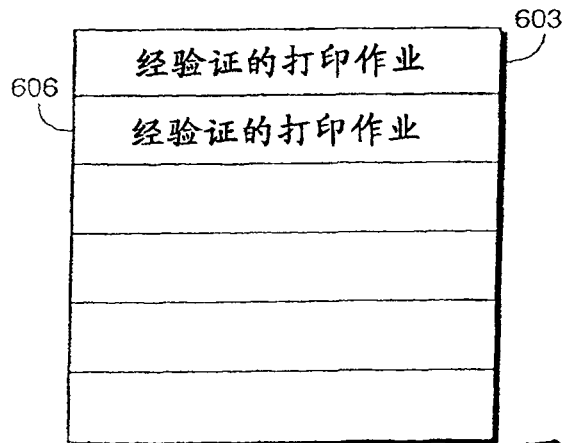 603
经验证的打印作业
606
经验证的打印作业